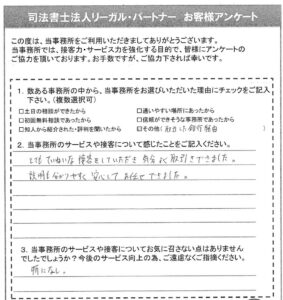 司法書士法人リーガル・パートナー　お客様アンケート
この度は、当事務所をご利用いただきましてありがとうございます。
当事務所では、接客力・サービス力を強化する目的で、皆様にアンケートの
ご協力を頂いております。お手数ですが、ご協力下されば幸いです。
1．数ある事務所の中から、当事務所をお選びいただいた理由にチェックをご記入
下さい。（複数選択可）
□土日の相談ができたから　□通いやすい場所にあったから
□初回無料相談であったから　□信頼ができそうな事務所であったから
□知人から紹介された・評判を聞いたから　☑その他（
2．当事務所のサービスや接客について感じたことをご記入ください。
していねいな 接客をしていただき 気分よく取引きできました。
説明も分りやすく 安心して お任せできました。
3．当事務所のサービスや接客についてお気に召さない点はありません
でしたでしょうか？今後のサービス向上の為、ご遠慮なくご指摘ください。
特になし。